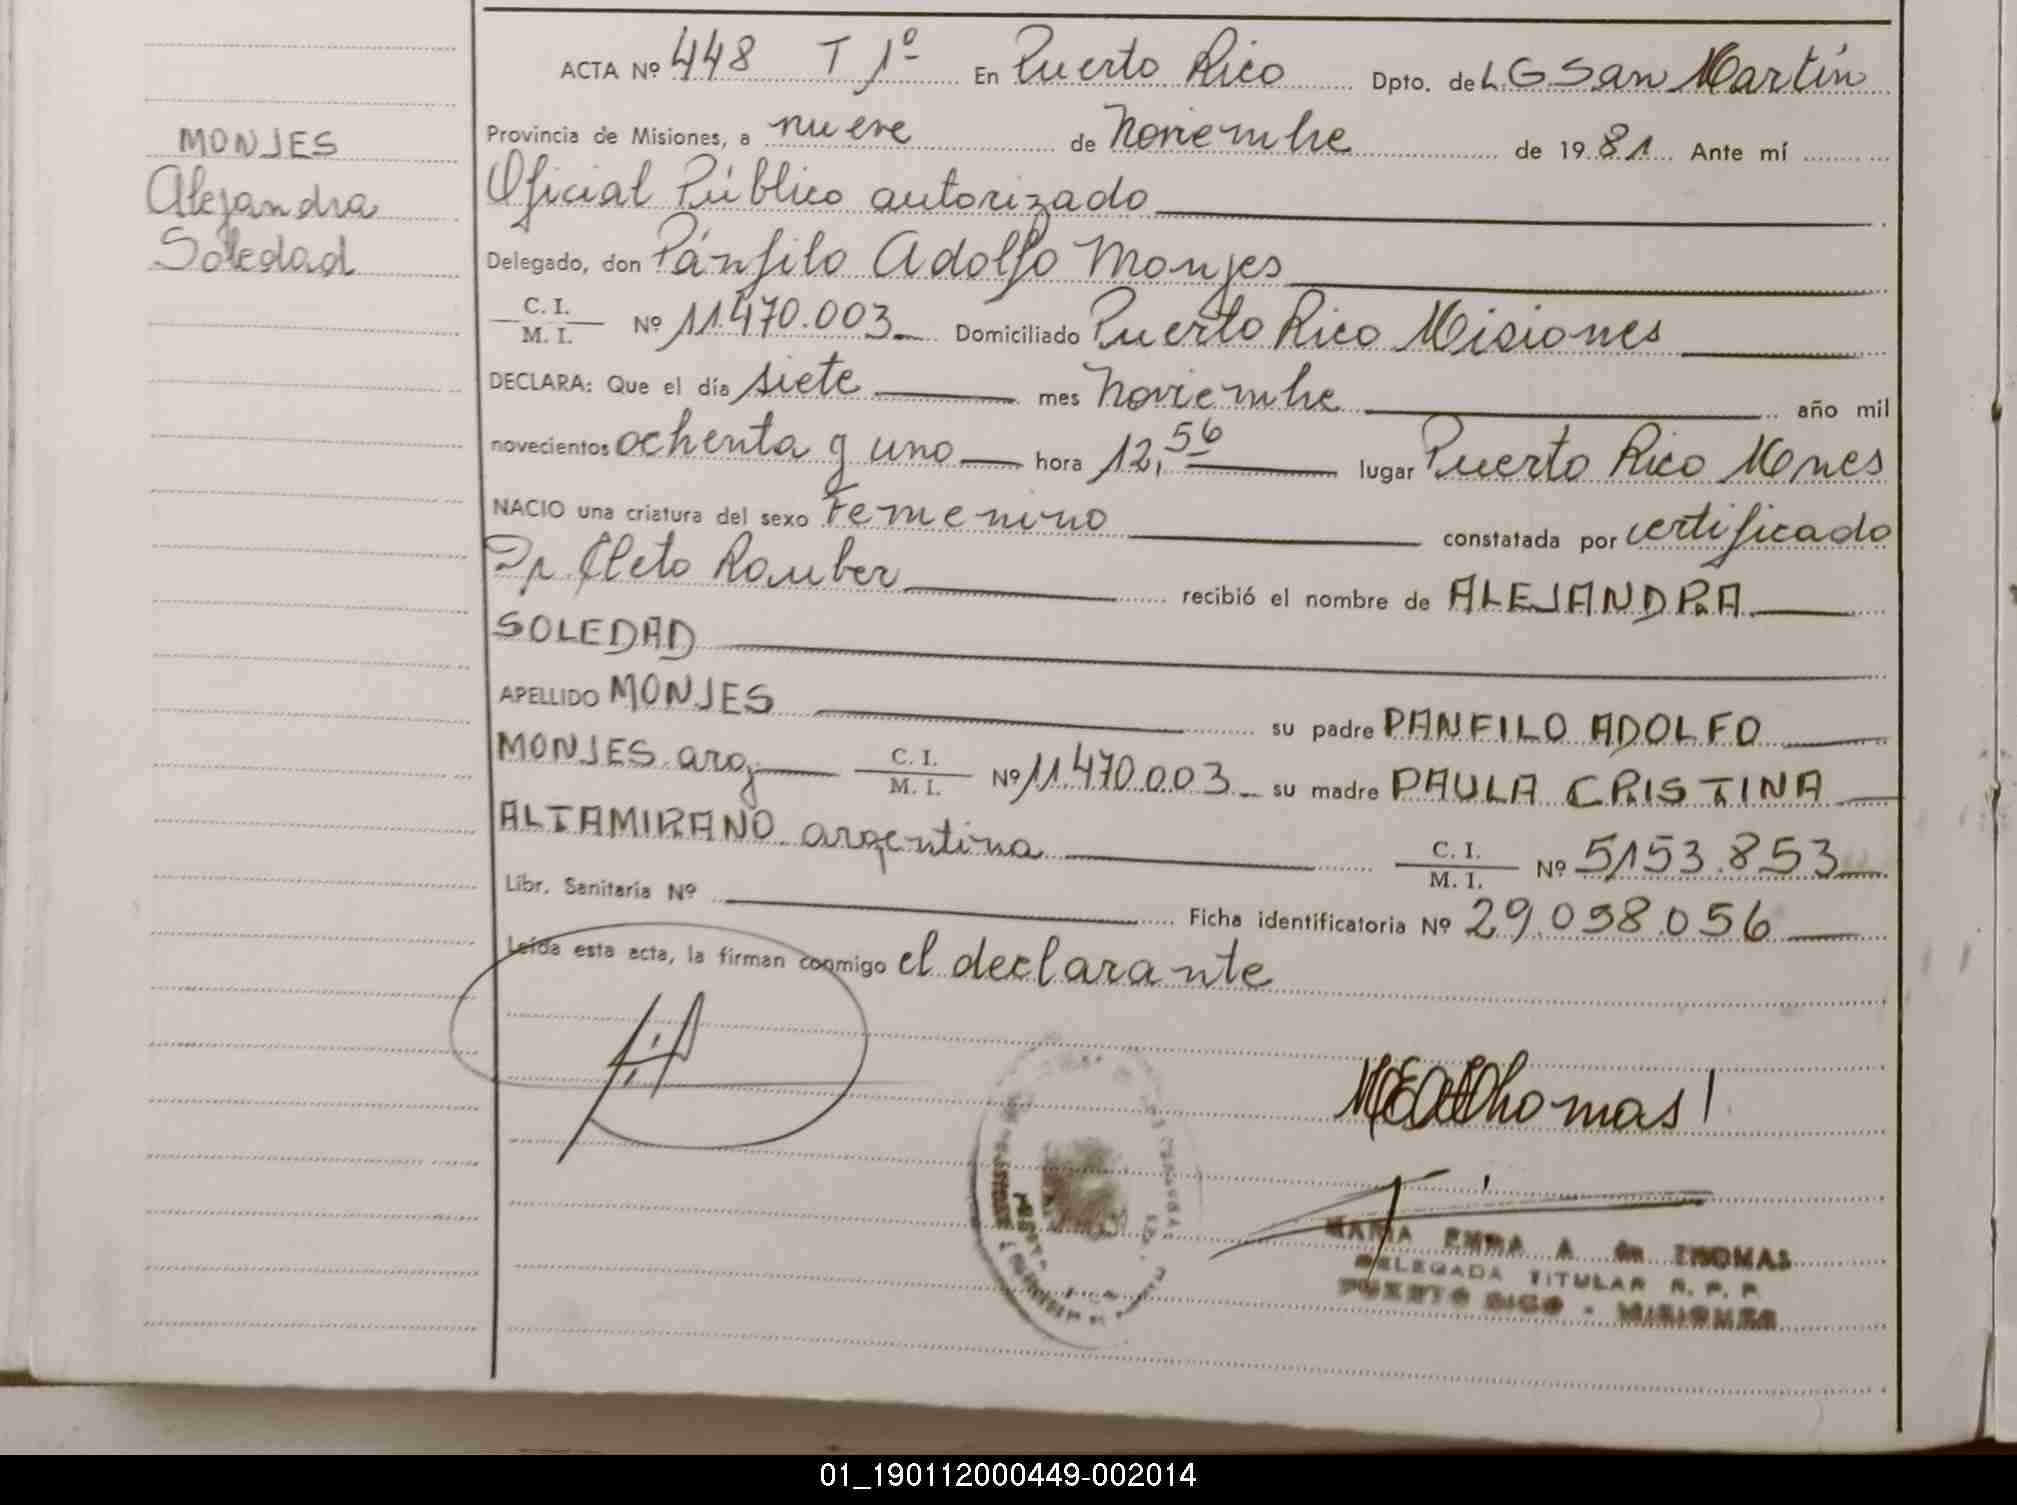 ACTA Nº 448 T 1º En Puerto Rico Dpto. de L.G San Martín
Provincia de Misiones, a nueve de Noviembre de 1981 Ante mí
Oficial Público autorizado
Delegado, don Pánfilo Adolfo Monjes
C. I.
M. I. Nº 11.470.003 Domiciliado Puerto Rico Misiones
DECLARA: Que el día siete mes Noviembre año mil
novecientos ochenta y uno hora 12,56 lugar Puerto Rico Mnes
NACIO una criatura del sexo Femenino constatada por certificado
Dr. Cleto Rauber recibió el nombre de ALEJANDRA
SOLEDAD
APELLIDO MONJES su padre PANFILO ADOLFO
MONJES arg C. I. M. I. Nº 11.470.003 su madre PAULA CRISTINA
ALTAMIRANO argentina C. I. M. I. Nº 5153.853
Libr. Sanitaria Nº Ficha identificatoria Nº 29.098.056
Leída esta acta, la firman conmigo el declarante
MONJES
Alejandra
Soledad
Thomas
MARIA EMMA A de THOMAS
DELEGADA TITULAR R. P. P.
PUERTO RICO - MISIONES
01_190112000449-002014